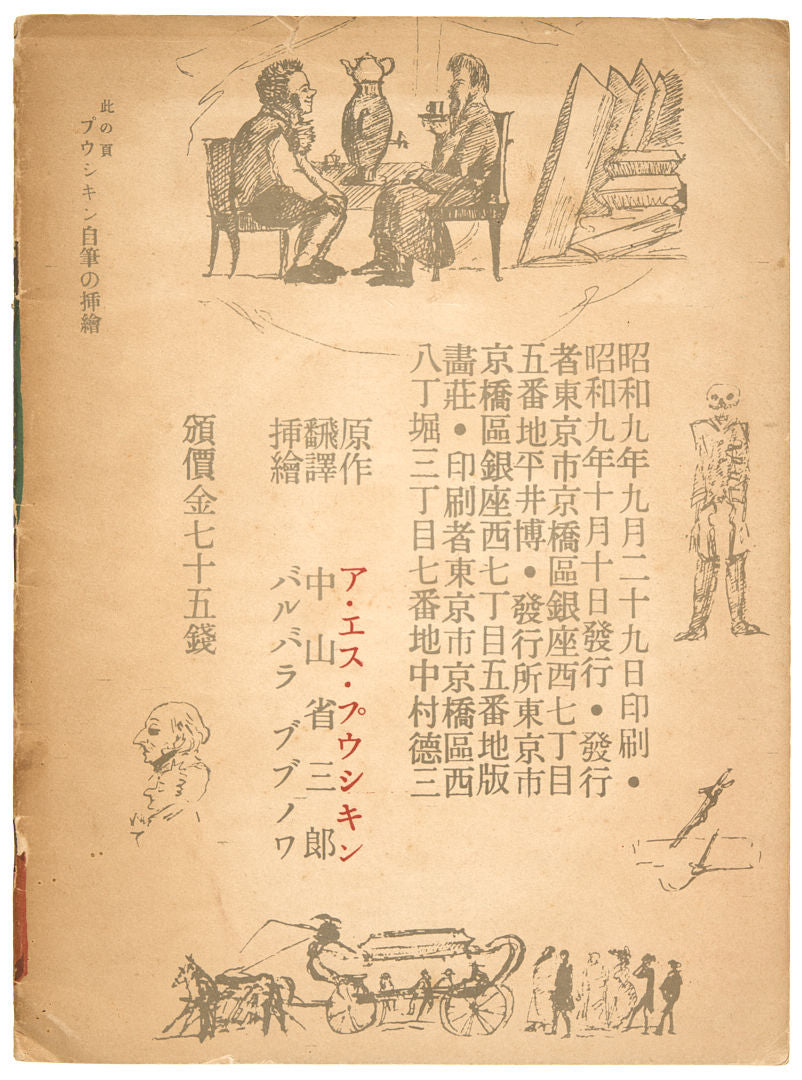 昭和九年九月二十九日印刷●
昭和九年十月十日發行●發行
者東京市京橋區銀座西七丁目
五番地平井博●發行所東京市
京橋區銀座西七丁目五番地版
畵莊●印刷者東京市京橋區西
八丁堀三丁目七番地中村德三
原作 ア・エス・プウシキン
飜譯 中山省三郎
挿繪 バルバラ ブブノワ
頒價金七十五錢
此の頁
プウシキン自筆の挿繪